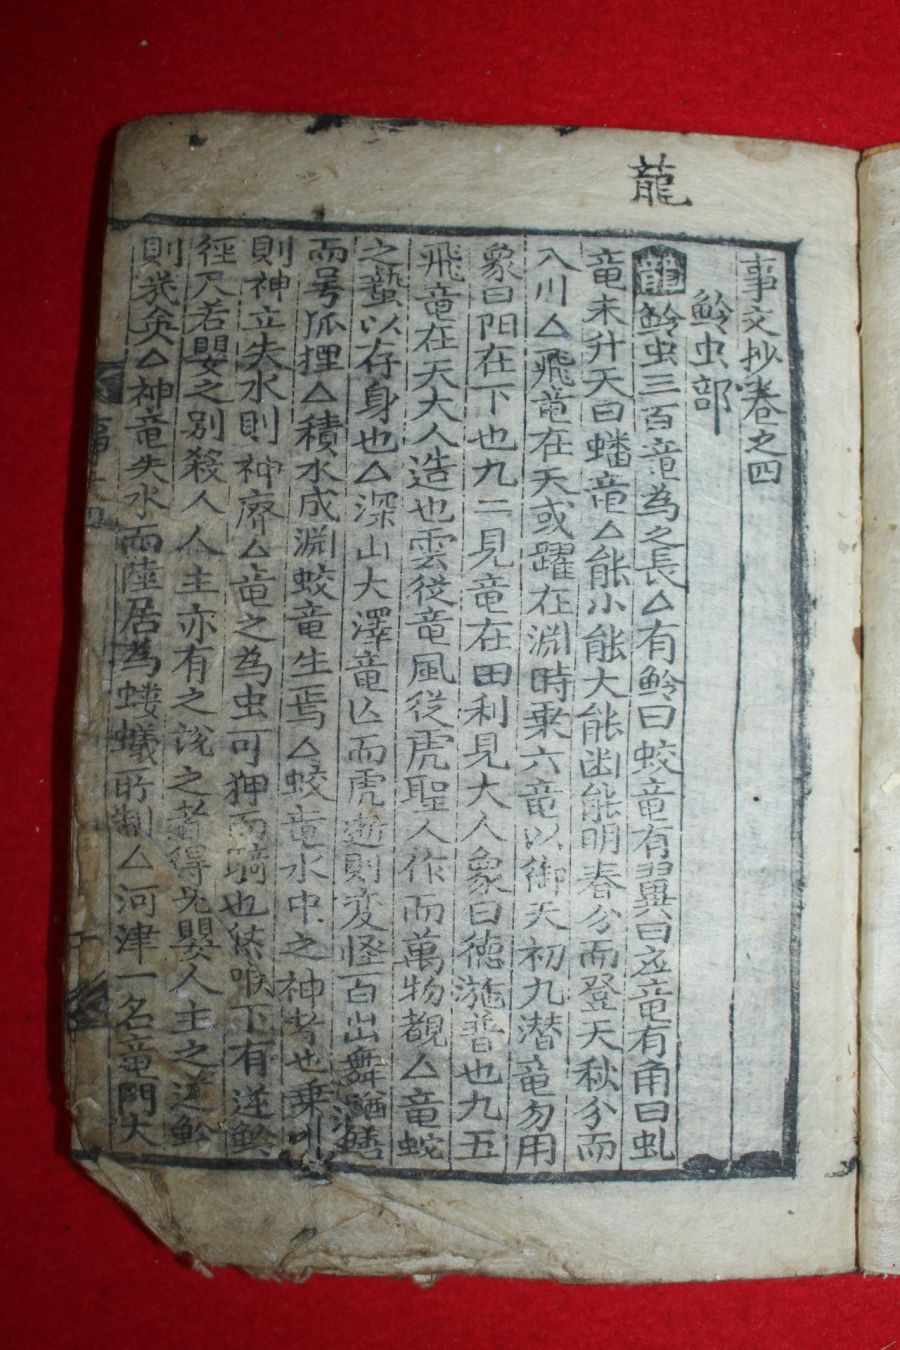 龍
事文抄卷之四
鈴虫部
龍鈴虫三百竜為之長△有鈴曰蛟竜有翼曰应竜有角曰虬
竜未升天曰蟠竜△能小能大能幽能明春分而登天秋分而
入川△飛竜在天或躍在淵時乗六竜以御天初九潜竜勿用
象曰阳在下也九二見竜在田利見大人象曰徳施普也九五
飛竜在天大人造也雲從竜風從虎聖人作而萬物覩△竜蛇
之蟄以存身也△深山大澤竜亾而虎逝則変怪百出舞鰌鱔
而号狐狸△積水成淵蛟竜生焉△蛟竜水中之神者也乗水
則神立失水則神廃△竜之為虫可狎而騎也然喉下有逆鈴
径尺若嬰之則殺人人主亦有之說之者得无嬰人主之逆鈴
則幾矣△神竜失水而陸居為螻蟻所制△河津一名竜門大